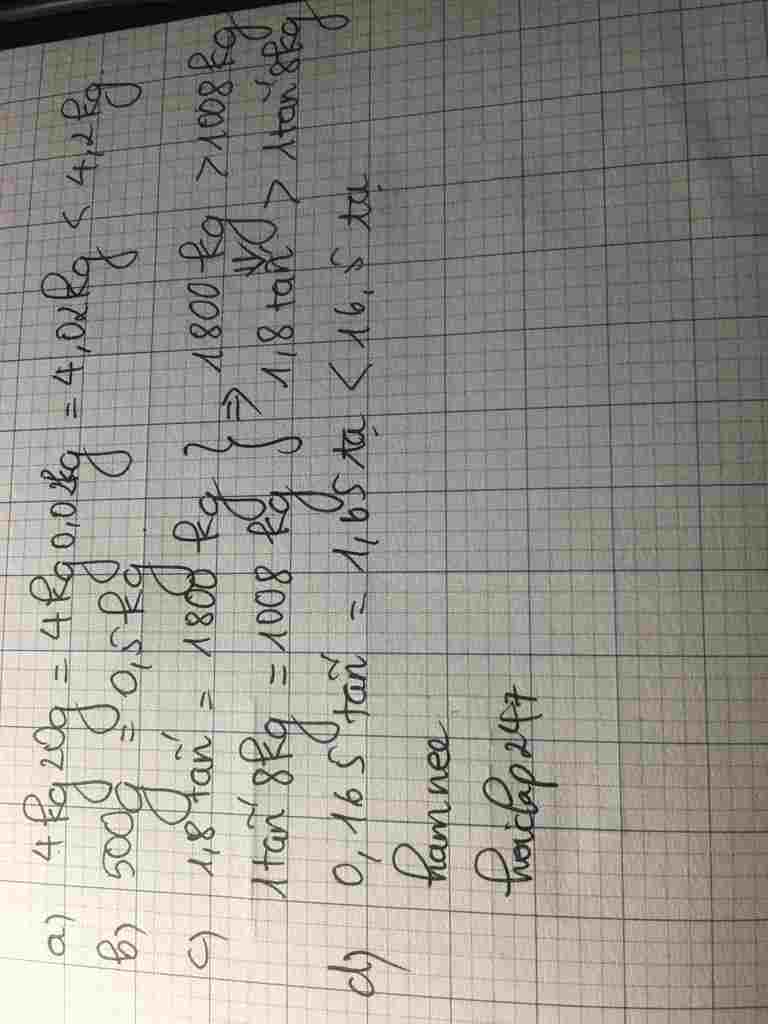 a) 4 kg 20g = 4 kg 0,02kg = 4,02kg < 4,2kg.
b) 500g = 0,5 kg.
c) 1,8 tấn = 1800 kg } ⇒ 1800 kg > 1008 kg
⇓
1 tấn 8kg = 1008 kg } 1,8 tấn > 1 tấn 8kg
d) 0,165 tấn = 1,65 tạ < 16,5 tạ
hamnee
hoidap247